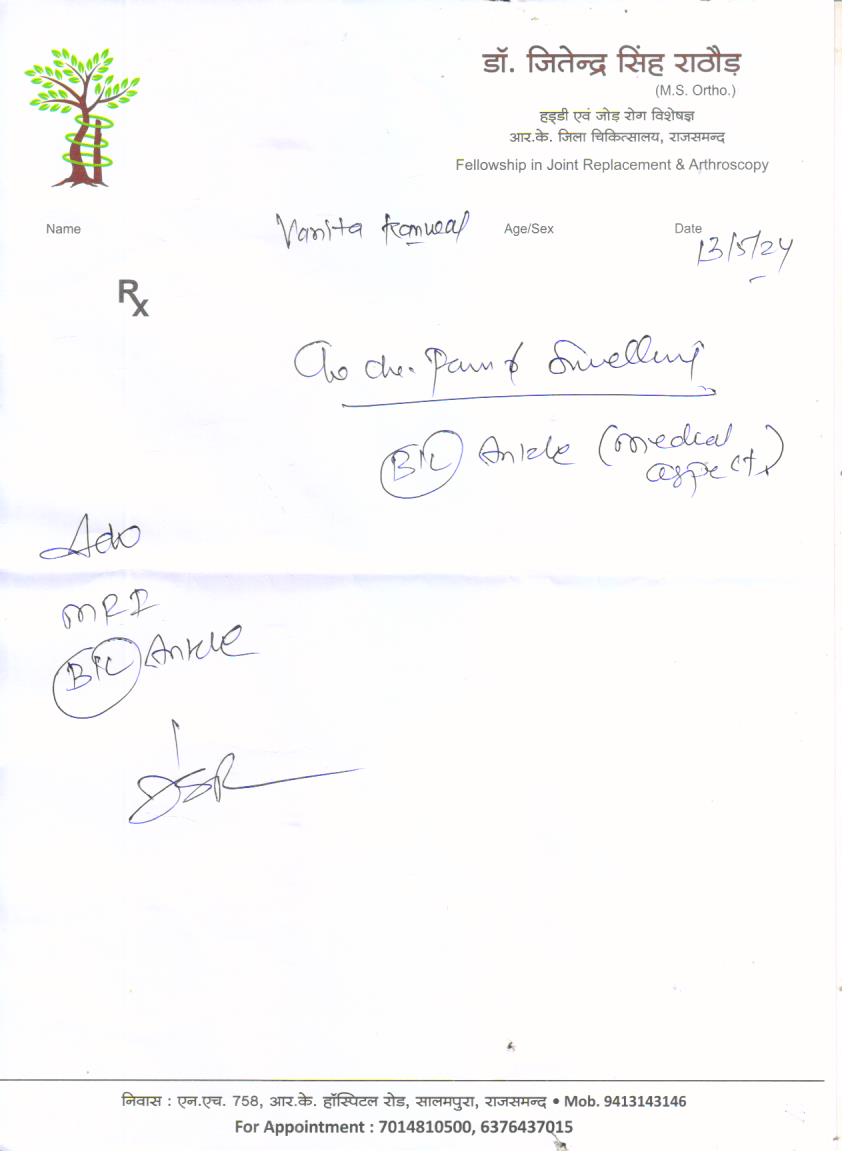 डॉ. जितेन्द्र सिंह राठौड़
(M.S. Ortho.)
हड्डी एवं जोड़ रोग विशेषज्ञ
आर.के. जिला चिकित्सालय, राजसमन्द
Fellowship in Joint Replacement & Arthroscopy
Name Vanita Kanwar Age/Sex Date 13/5/24
Rx
C/o chr. Pain & Swelling
B/L Ankle (medial aspect)
Adv
MRI
B/L Ankle
निवास : एन.एच. 758, आर.के. हॉस्पिटल रोड, सालमपुरा, राजसमन्द • Mob. 9413143146
For Appointment : 7014810500, 6376437015